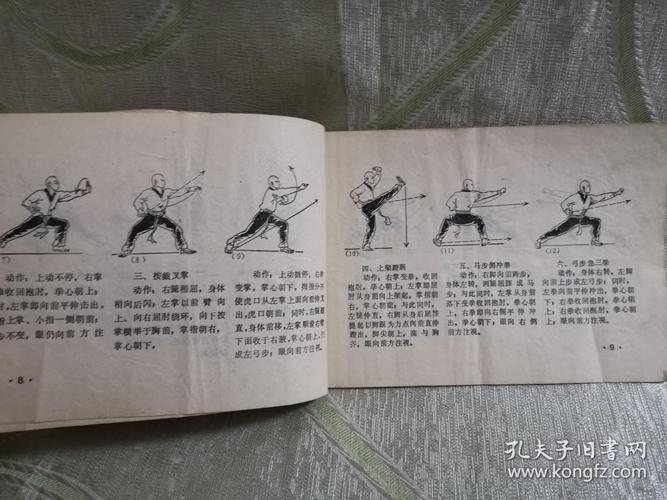 7)
动作：上动不停，右掌
拳收回抱肘，拳心朝上；
时，左掌即向前平伸击出，
指上掌，小指一侧朝前；
步不变，眼仍向前方注
视。
· 8 ·
(8)
三、按截叉掌
动作：右腿稍屈，身体
稍向后闪；左掌以前臂向
上、向右屈肘绕环，向下按
掌横举于胸前，掌指朝右，
掌心朝下。
(9)
动作：上动微停，右拳
变掌，掌心朝下，拇指分开
使虎口从左掌上面向前伸叉
出，虎口朝前；同时，右腿蹬
直，身体前移，左掌顺着右臂
下面收于右腋，掌心朝上，
成左弓步；眼向前方注视。
(10)
四、上架蹬踢
动作：右掌变拳，收回
抱肘，拳心朝上；左掌即屈
肘从身前向上架起，掌指朝
右，掌心朝前；与此同时，
左腿伸直，右脚从身后屈膝
提起以脚跟为力点向前直伸
蹬出，脚尖朝上，高与胸
齐，眼向前方注视。
(11)
五、马步侧冲拳
动作：右脚向前跨步，
身体左转，两腿屈膝成马
步；与此同时，左掌从身前
落下变拳收回抱肘，拳心朝
上，右拳即向右侧平伸冲
出，拳心朝下；眼向右侧
前方注视。
(12)
六、弓步急三拳
动作：身体右转，左脚
向前上步成左弓步；同时，
左拳向前平伸冲出，
右拳收回抱肘，拳心朝
上；眼向前方注视。
· 9 ·
孔夫子旧书网
www.kongfz.com